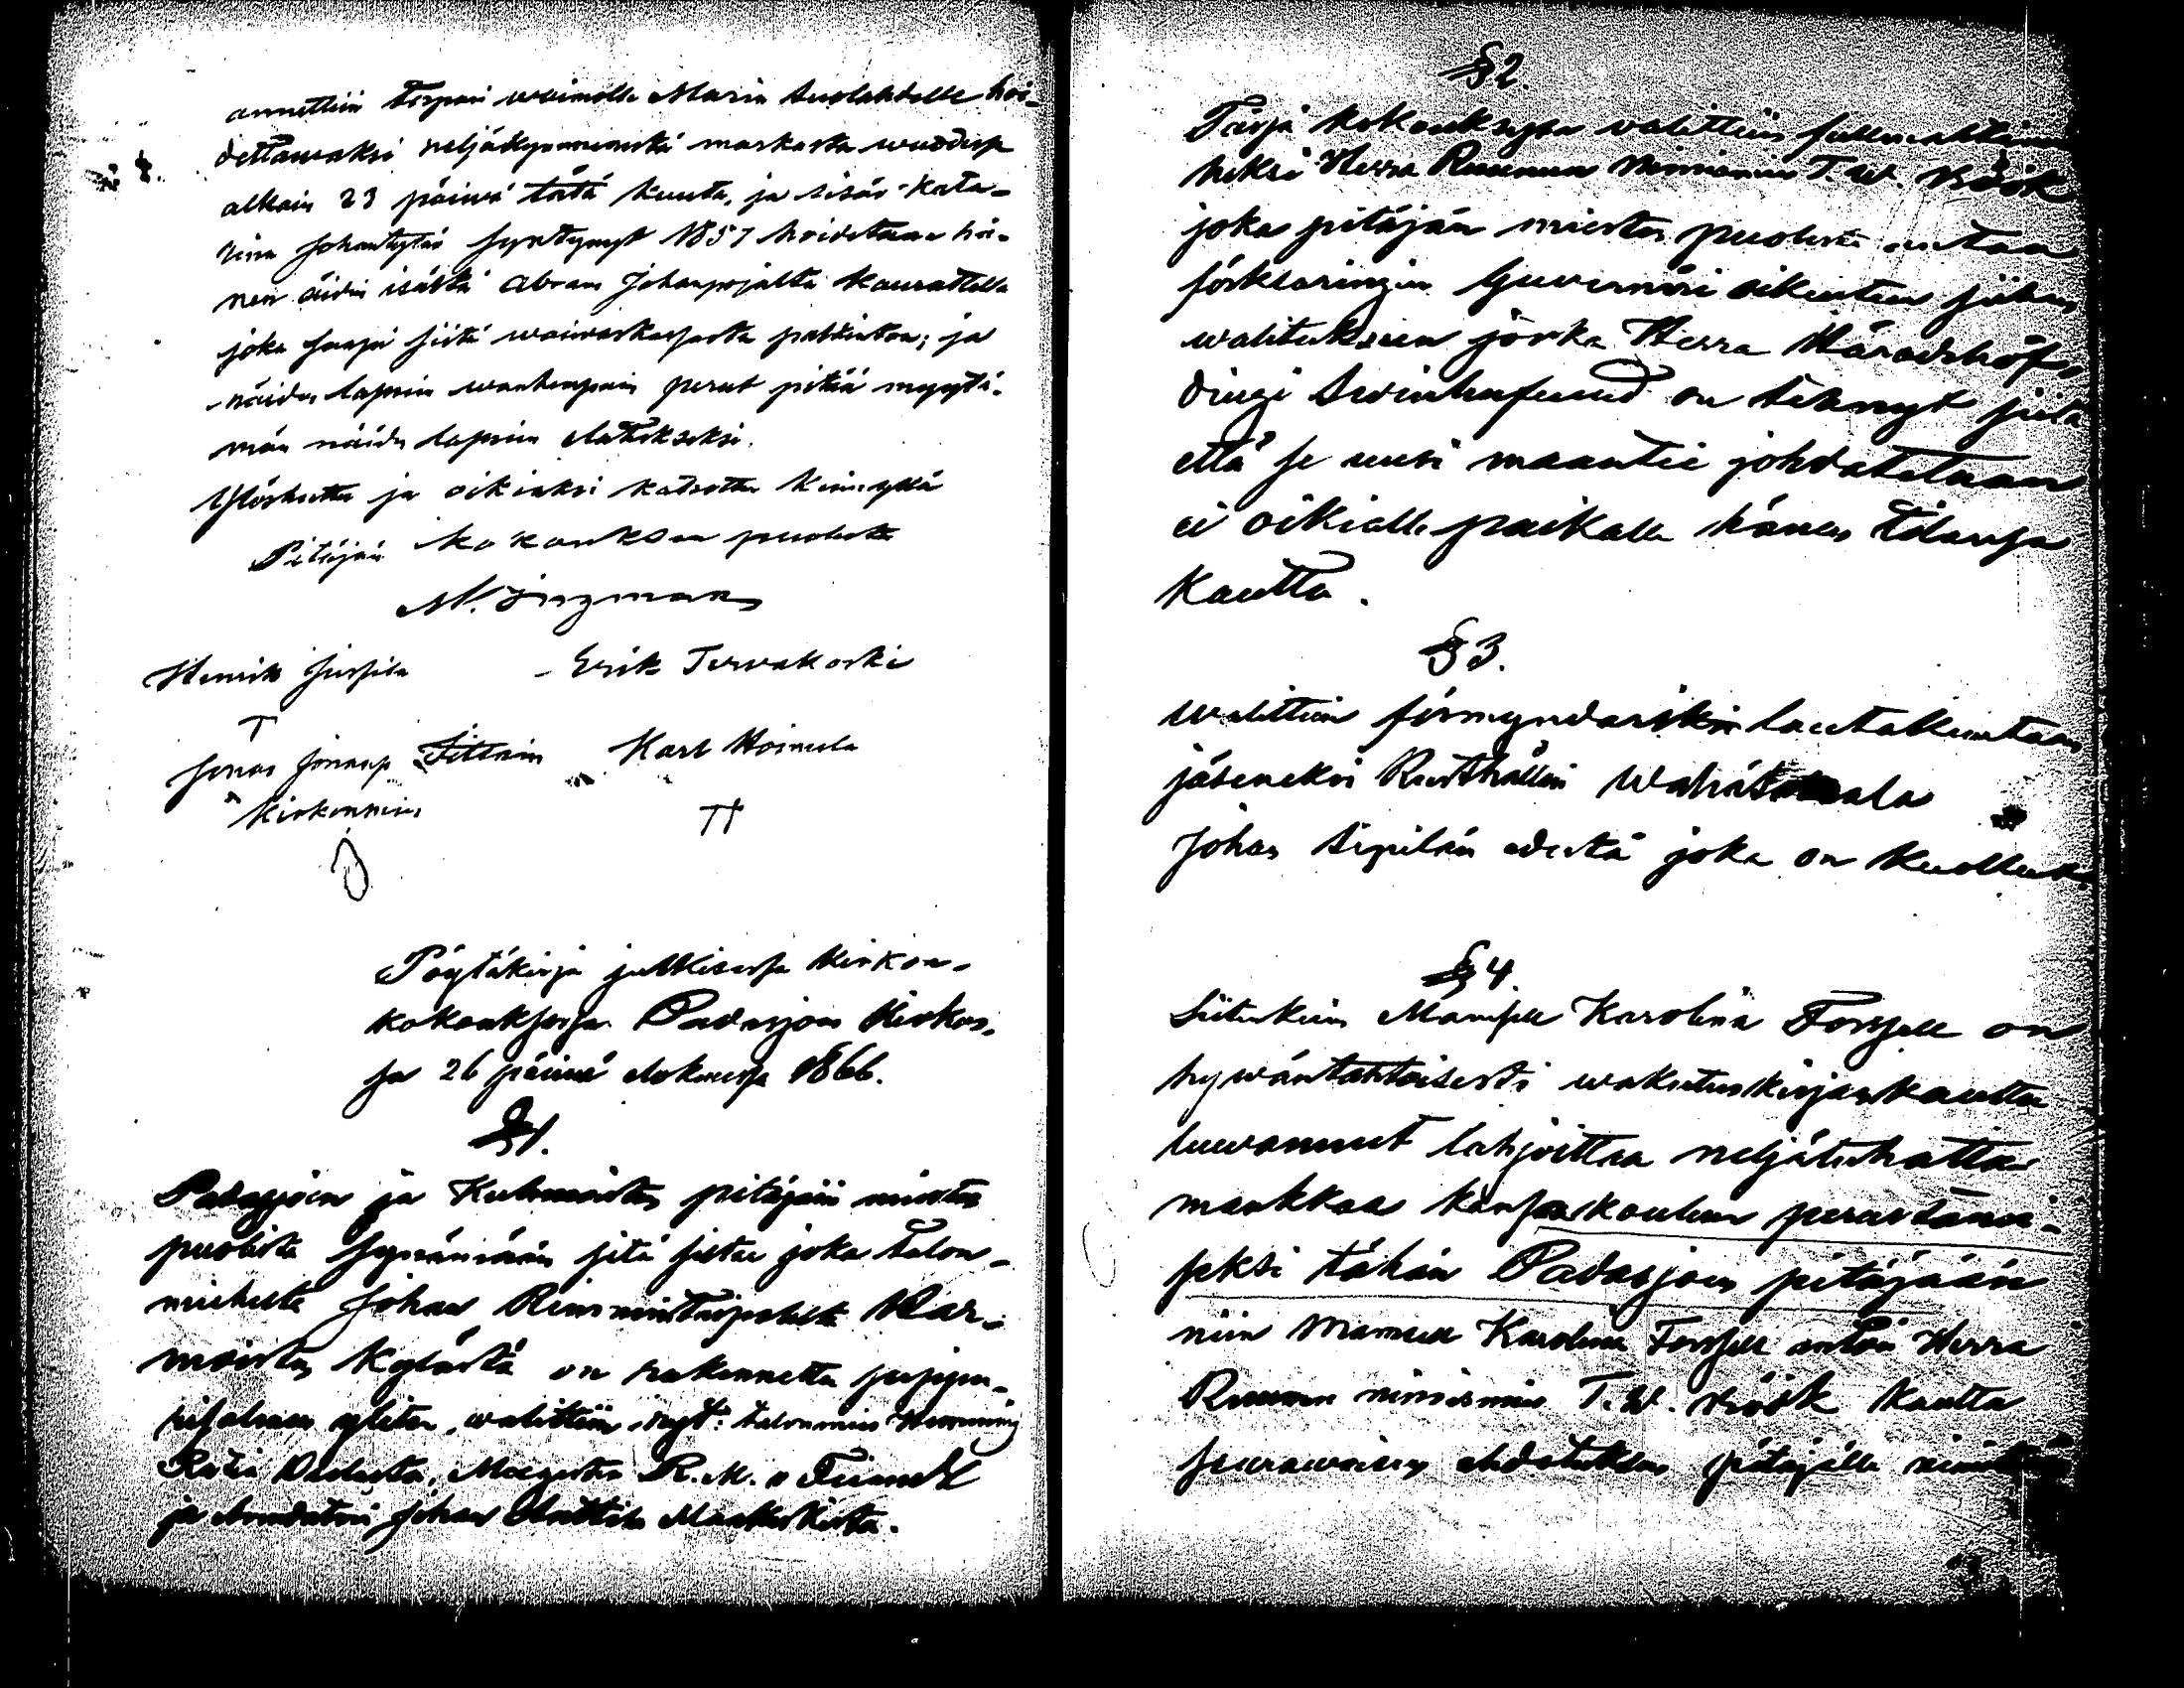 annettiin Torpari waimolle Maria Suolahdelle hoi-
dettawaksi neljäkymmenestä markasta wuodesa
alkain 23 päiwä tätä kuuta, ja sisär Kata-
riina Johantytär syntynyt 1857 hoidetaan hä-
nen äidin isältä Abram Johanpojalta Kaurastella
joka saapi siitä waiwaskassasta palkintoa; ja
näiden lapsein wanhempain perut pitää myytä-
män näiden lapsein elatukseksi.
Ylösluettu ja oikiaksi katsottu kinnyttä
Pitäjän kokouksen puolesta
M. Ingman
Henrik Jussila - Erik Terwakoski
Jonas Jonasp Karl Hoimela
Kirkonmies
Pöytäkirja julkisesa Kirkon-
kokouksesa Padasjoen Kirkos-
sa 26 päiwä elokuusa 1866.
§1.
Padasjoen ja Kuhmoisten pitäjän miesten
puolesta synämään sitä siltaa joka talon-
miehestä Johan
moisten kylästä on rakennettu
ylitse, walittiin nyt: talonmies Hemming
R. M.
ja Johan Anttila Maakeskestä.
§2.
Tässä kokouksessa walittiin fullmahtimie-
heksi Herra Ruunun Nimismies T. W. Höök
joka pitäjän miesten puolesta antaa
förklaringin Guvernöri oikeuteen siihen
walitukseen jonka Herra Häradshöf-
dingi Swinhufwud on tehnyt siitä
että se uusi maantie johdatetaan
ei oikialle paikalle hänen tilansa
kautta.
§3.
Walittiin förmyndariskin lautakuntaan
jäseneksi Rusthålli
Johan Sipilän edestä joka on kuollut.
§4.
Siitenkuin Mamsell Karolina Forssell on
hywäntahtoisesti wakutuskirjan kautta
luwannut lahjoittaa neljätuhatta
markkaa kansakoulun perustami-
seksi tähän Padasjoen pitäjään
niin Mamsell Karolina Forssell antoi Herra
Ruunun nimismies T. W. Höök kautta
seurawaisen ehdotuksen pitäjälle